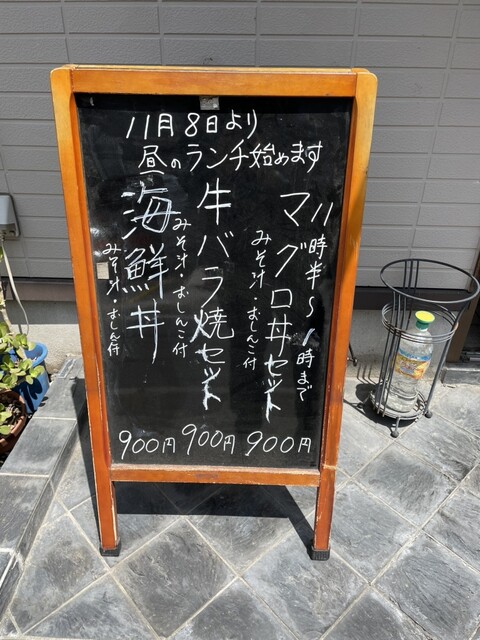 11月8日より
昼のランチ始めます
11時半〜1時まで
マグロ丼セット
みそ汁・おしんこ付
900円
牛バラ焼セット
みそ汁・おしんこ付
900円
海鮮丼
みそ汁・おしん付
900円